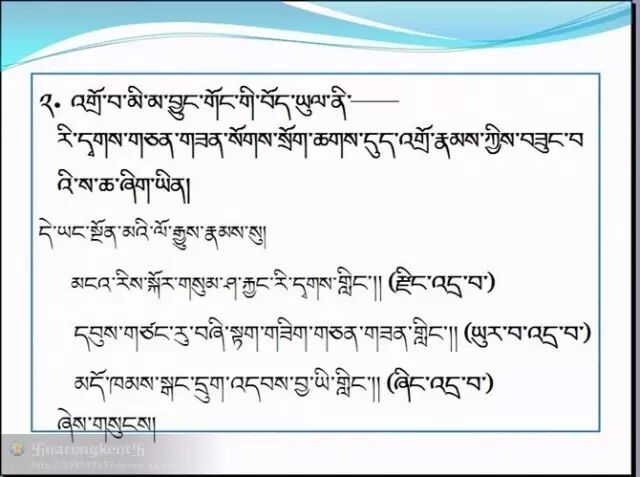 ༢. འགྲོ་བ་མི་མ་བྱུང་གོང་གི་བོད་ཡུལ་ནི་——
རི་དྭགས་གཅན་གཟན་སོགས་སྲོག་ཆགས་དུད་འགྲོ་རྣམས་ཀྱིས་བཟུང་བ
འི་ས་ཆ་ཞིག་ཡིན།
དེ་ཡང་སྔོན་མའི་ལོ་རྒྱུས་རྣམས་སུ།
མངའ་རིས་སྐོར་གསུམ་ཤ་རྐྱང་རི་དྭགས་གླིང་།། (རྫིང་འདྲ་བ་)
དབུས་གཙང་རུ་བཞི་སྟག་གཟིག་གཅན་གཟན་གླིང་།། (ཡུར་བ་འདྲ་བ་)
མདོ་ཁམས་སྒང་དྲུག་འདབས་བྱ་ཡི་གླིང་།། (ཞིང་འདྲ་བ་)
ཞེས་གསུངས།
卐narongkent卐